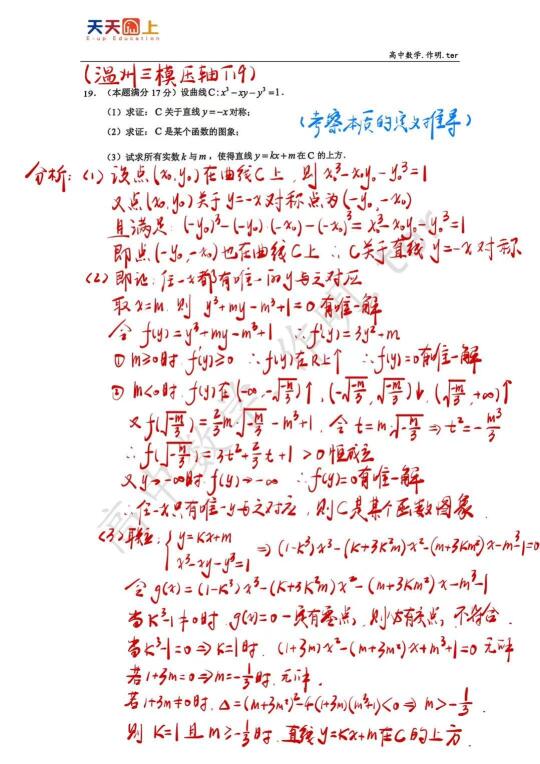 天天向上
E-up Education
高中数学.作明.ter
(温州三模压轴T19)
19. (本题满分 17 分) 设曲线 C: x³ - xy - y³ = 1.
(1) 求证: C 关于直线 y = -x 对称;
(2) 求证: C 是某个函数的图象;
(考察本质的定义推导)
(3) 试求所有实数 k 与 m, 使得直线 y = kx + m 在 C 的上方.
分析: (1) 设点(x₀,y₀)在曲线C上, 则 x₀³-x₀y₀-y₀³=1
又点(x₀,y₀)关于y=-x对称点为(-y₀,-x₀)
且满足: (-y₀)³-(-y₀)(-x₀)-(-x₀)³=x₀³-x₀y₀-y₀³=1
即点(-y₀,-x₀)也在曲线C上 ∴C关于直线y=-x对称
(2) 即证: 任一x都有唯一的y与之对应
取x=m. 则 y³+my-m³+1=0有唯一解
令f(y)=y³+my-m³+1 ∴f'(y)=3y²+m
① m≥0时 f'(y)≥0 ∴f(y)在R上↑ ∴f(y)=0有唯一解
② m<0时 f(y)在(-∞,-√(-m/3))↑, (-√(-m/3),√(-m/3))↓, (√(-m/3),+∞)↑
又f(√(-m/3))=2/3m√(-m/3)-m³+1. 令t=m√(-m/3) ⇒ t²=-m³/3
∴f(√(-m/3))=3t²+2/3t+1>0恒成立
又y→-∞时f(y)→-∞ ∴f(y)=0有唯一解
∴任一x只有唯一y与之对应, 则C是某个函数图象
(3) 联立: { y=kx+m
x³-xy-y³=1 ⇒ (1-k³)x³-(k+3k²m)x²-(m+3km²)x-m³-1=0
令g(x)=(1-k³)x³-(k+3k²m)x²-(m+3km²)x-m³-1
当k³-1≠0时 g(x)=0一定有零点, 则必有交点, 不符合.
当k³-1=0⇒k=1时. (1+3m)x²-(m+3m²)x+m³+1=0 无解
若1+3m=0⇒m=-1/3时. 无解.
若1+3m≠0时. Δ=(m+3m²)²-4(1+3m)(m³+1)<0⇒m>-1/3
则 k=1且m≥-1/3时. 直线y=kx+m在C的上方.
高中数学.作明.ter